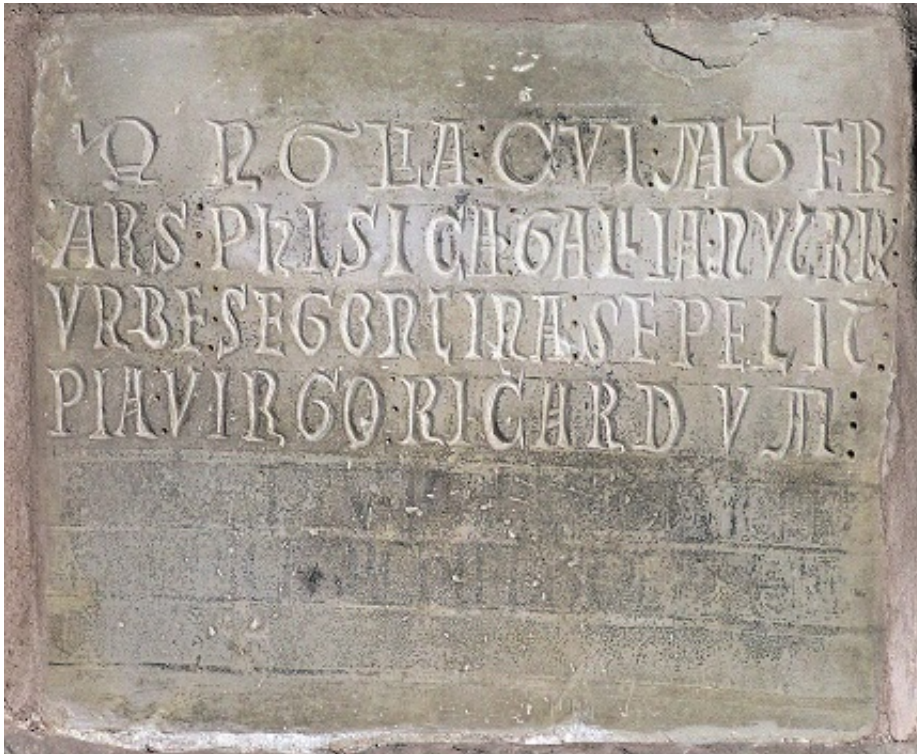 ANGLIA : CVI : MATER
ARS : PHISICA : GALLIA : NVTRIX
VRBE : SEGONTINA : SEPELIT :
PIA : VIRGO : RICARDVM :